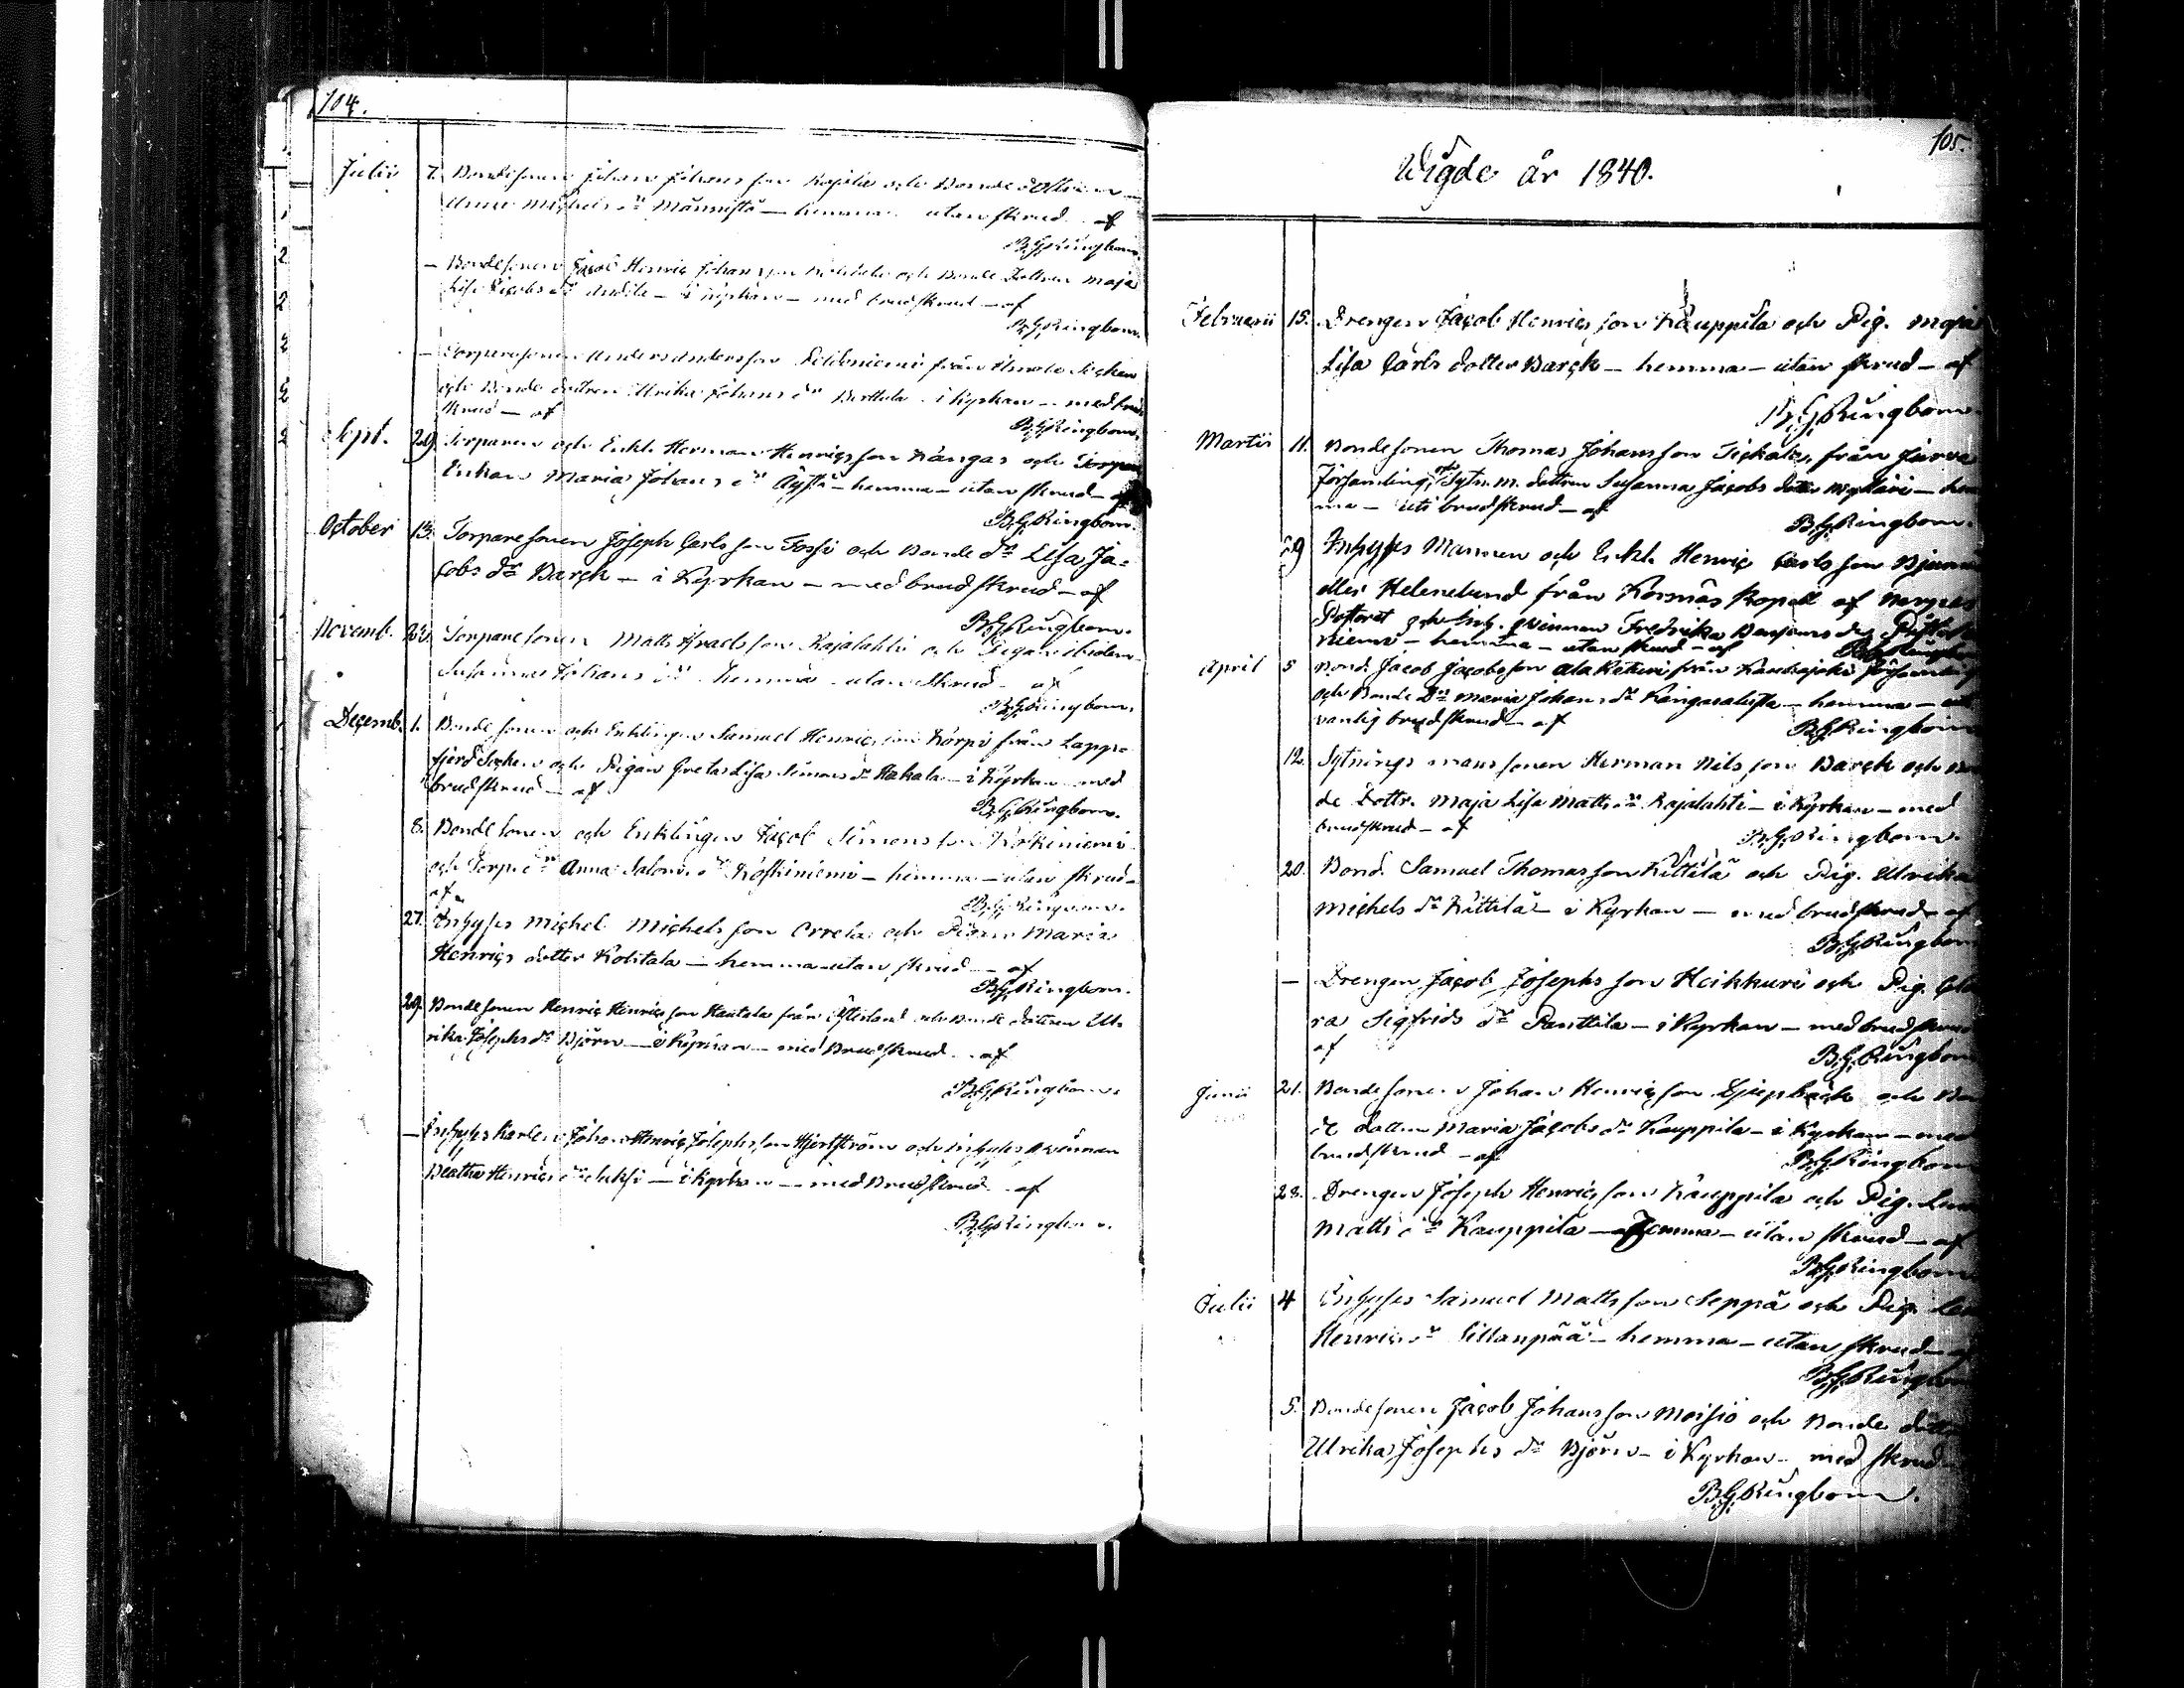 104.
Julii 7. Bondesonen Johan Johansson Rajala och Bondedottren
Michels dr Männistö – hemma utan skrud af
B.G. Ringbom.
– Bondesonen Jacob Henric Johansson och Bonde Dottren Maja
Lisa Jacobs dr – i Kyrkan – med brudskrud – af
B.G. Ringbom.
– Torparesonen Anders Andersson från Ilmola Socken
och Bonde dottren Ulrika Johans dr Berttula i Kyrkan – med brud
skrud – af
B.G. Ringbom.
Sept. 29. Torparen och Enkl. Herman Henricsson Kangas och Torpare
Enkan Maria Johans dr Äystö – hemma – utan skrud – af
B.G. Ringbom.
October 13. Torparesonen Joseph Carlsson Fossi och Bonde dr Lisa Ja-
cobs dr Barck – i Kyrkan – med brudskrud – af
B.G. Ringbom.
Novemb. Torparesonen Matts Israelsson Rajalahti och Pigan
Susanna Johans dr hemma – utan Skrud – af
B.G. Ringbom.
Decemb. 1. Bondesonen och Enklingen Samuel Henricsson Korpi från Lapp-
fjerd Socken och Pigan Greta Lisa Simons dr Hakala – i Kyrkan med
brudskrud – af
B.G. Ringbom.
8. Bondesonen och Enklingen Jacob Simonsson Koskiniemi
och Torp. dr Anna Salom. dr Koskiniemi – hemma – utan skrud –
af
B.G. Ringbom.
27. Inhyses Michel Michelsson Orrela och Pigan Maria
Henrics dotter Kohtala – hemma – utan skrud – af
B.G. Ringbom.
29. Bondesonen Henric Henricsson Hautala från Östermark och Bonde dottren Ul-
rika Josephs dr Björn – i Kyrkan – med Brudskrud – af
B.G. Ringbom.
– Inhyses Karlen Johan Henric Josephsson Hjertström och inhyses qvinnan
Beatha Henrics dr – i Kyrkan – med Brudskrud – af
B.G. Ringbom.
105.
Wigde år 1840.
Februarii 15. Drengen Jacob Henricsson Kauppila och Pig. Maja
Lisa Carls dotter Barck – hemma – utan skrud – af
B.G. Ringbom.
Martii 11. Bondesonen Thomas Johansson från
Församling, Sytn. m. dottren Susanna Jacobs dotter – hem
ma – uti brudskrud – af
B.G. Ringbom.
29 Inhyses Mannen och Enkl. Henric Carlsson
eller Helenelund från Korsnäs Kapell af
Pastorat och Inh. qvinnan Fredrika
niemi – hemma – utan skrud – af B.G. Ringbom
April 5 Bond. Jacob Jacobsson Ala Keturi från Kauhajoki Församling
och Bonde Dr Maria Johans dr Kangasalusta – hemma –
vanlig brudskrud – af
B.G. Ringbom
12. Sytningsmanssonen Herman Nilsson Barck och Bon
de Dottr. Maja Lisa Matts dr Rajalahti – i Kyrkan – med
brudskrud – af
B.G. Ringbom.
20. Bond. Samuel Thomasson Kittilä och Pig. Ulrika
Michels dr Kittilä – i Kyrkan – med brudskrud – af
B.G. Ringbom
– Drengen Jacob Josephsson Heikkuri och Pig.
ra Sigfrids dr Panttila – i Kyrkan – med brudskrud
af
B.G. Ringbom
Junii 21. Bondesonen Johan Henricsson och Bon
de dottren Maria Jacobs dr Kauppila – i Kyrkan – med
brudskrud – af
B.G. Ringbom
28. Drengen Joseph Henricsson Kauppila och Pig.
Matts dr Kauppila – hemma – utan skrud – af
B.G. Ringbom
Julii 4 Inhyses Samuel Mattsson Seppä och Pig.
Henrics dr Sillanpää – hemma – utan skrud – af
B.G. Ringbom
5. Bondesonen Jacob Johansson Moisio och Bonde dott
Ulrika Josephs dr Björn – i Kyrkan – med skrud –
B.G. Ringbom.